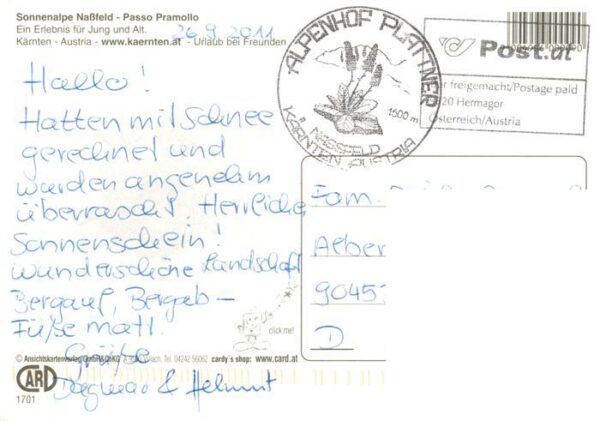 Sonnenalpe Naßfeld - Passo Pramollo
Ein Erlebnis für Jung und Alt.
Kärnten - Austria - www.kaernten.at - Urlaub bei Freunden
26.9.2011
Hallo!
Hatten mit Schnee
gerechnet und
wurden angenehm
überrascht. Herrlicher
Sonnenschein!
wunderschöne Landschaft
Bergauf, Bergab -
Füße matt.
Grüße
Dagmar & Helmut
ALPENHOF PLATTNER
1600 m
NASSFELD
KÄRNTEN AUSTRIA
Post.at
freigemacht/Postage paid
20 Hermagor
Österreich/Austria
Fam.
Alber
9045
D
click me!
© Ansichtskartenverlag
Tel. 04242 56062 cardy's shop: www.card.at
CARD
1701